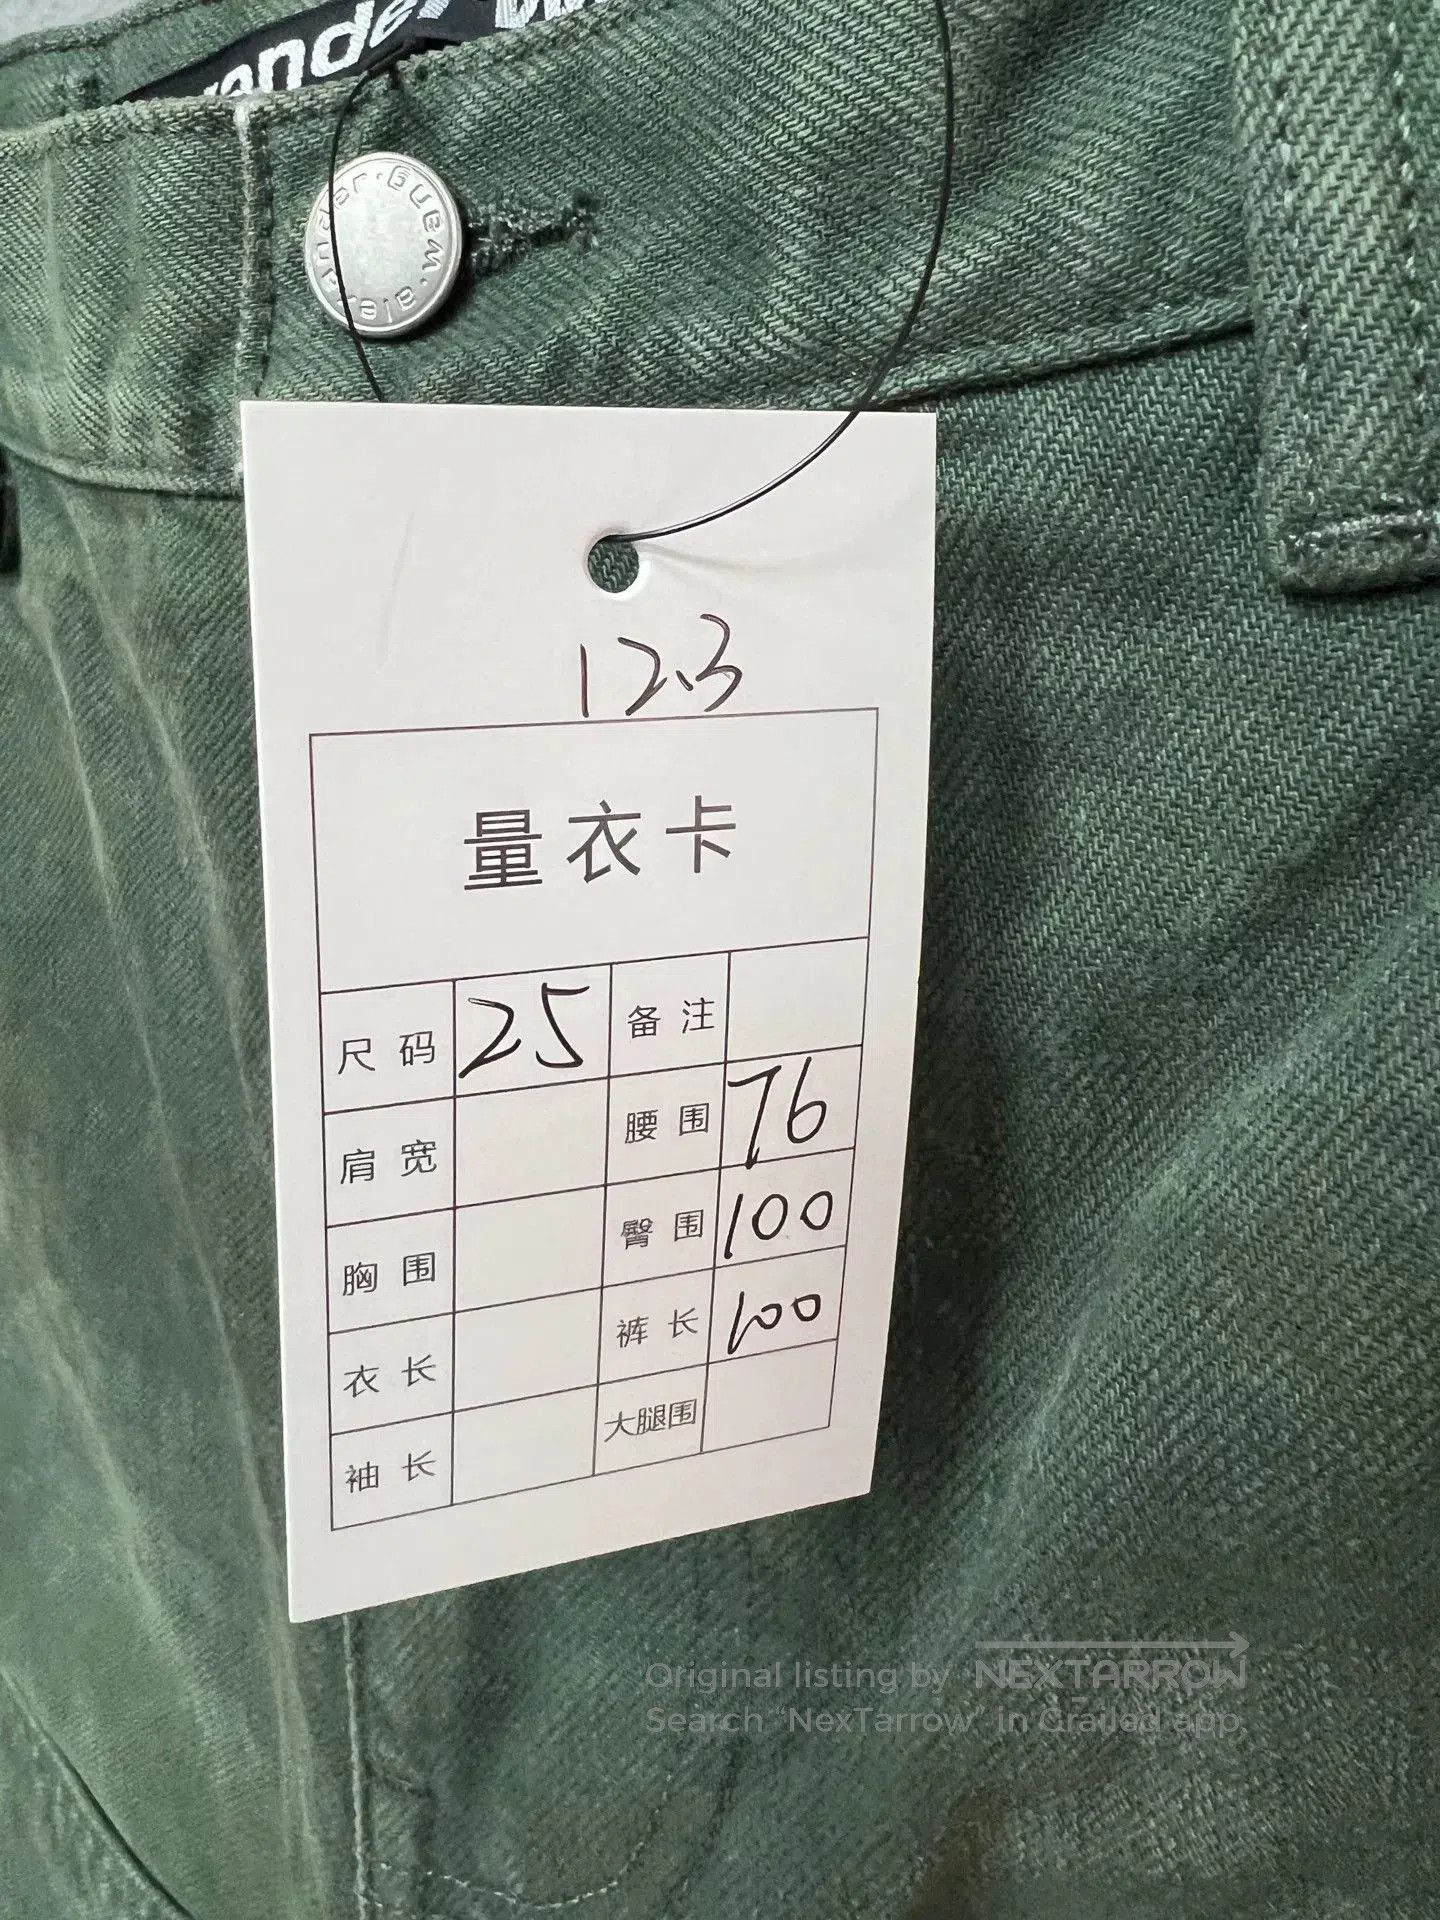 alexander wang
12.3
量衣卡
尺码 25 备注
肩宽 腰围 76
胸围 臀围 100
衣长 裤长 100
袖长 大腿围
Original listing by NEXTARROW
Search “NexTarrow” in Grailed app